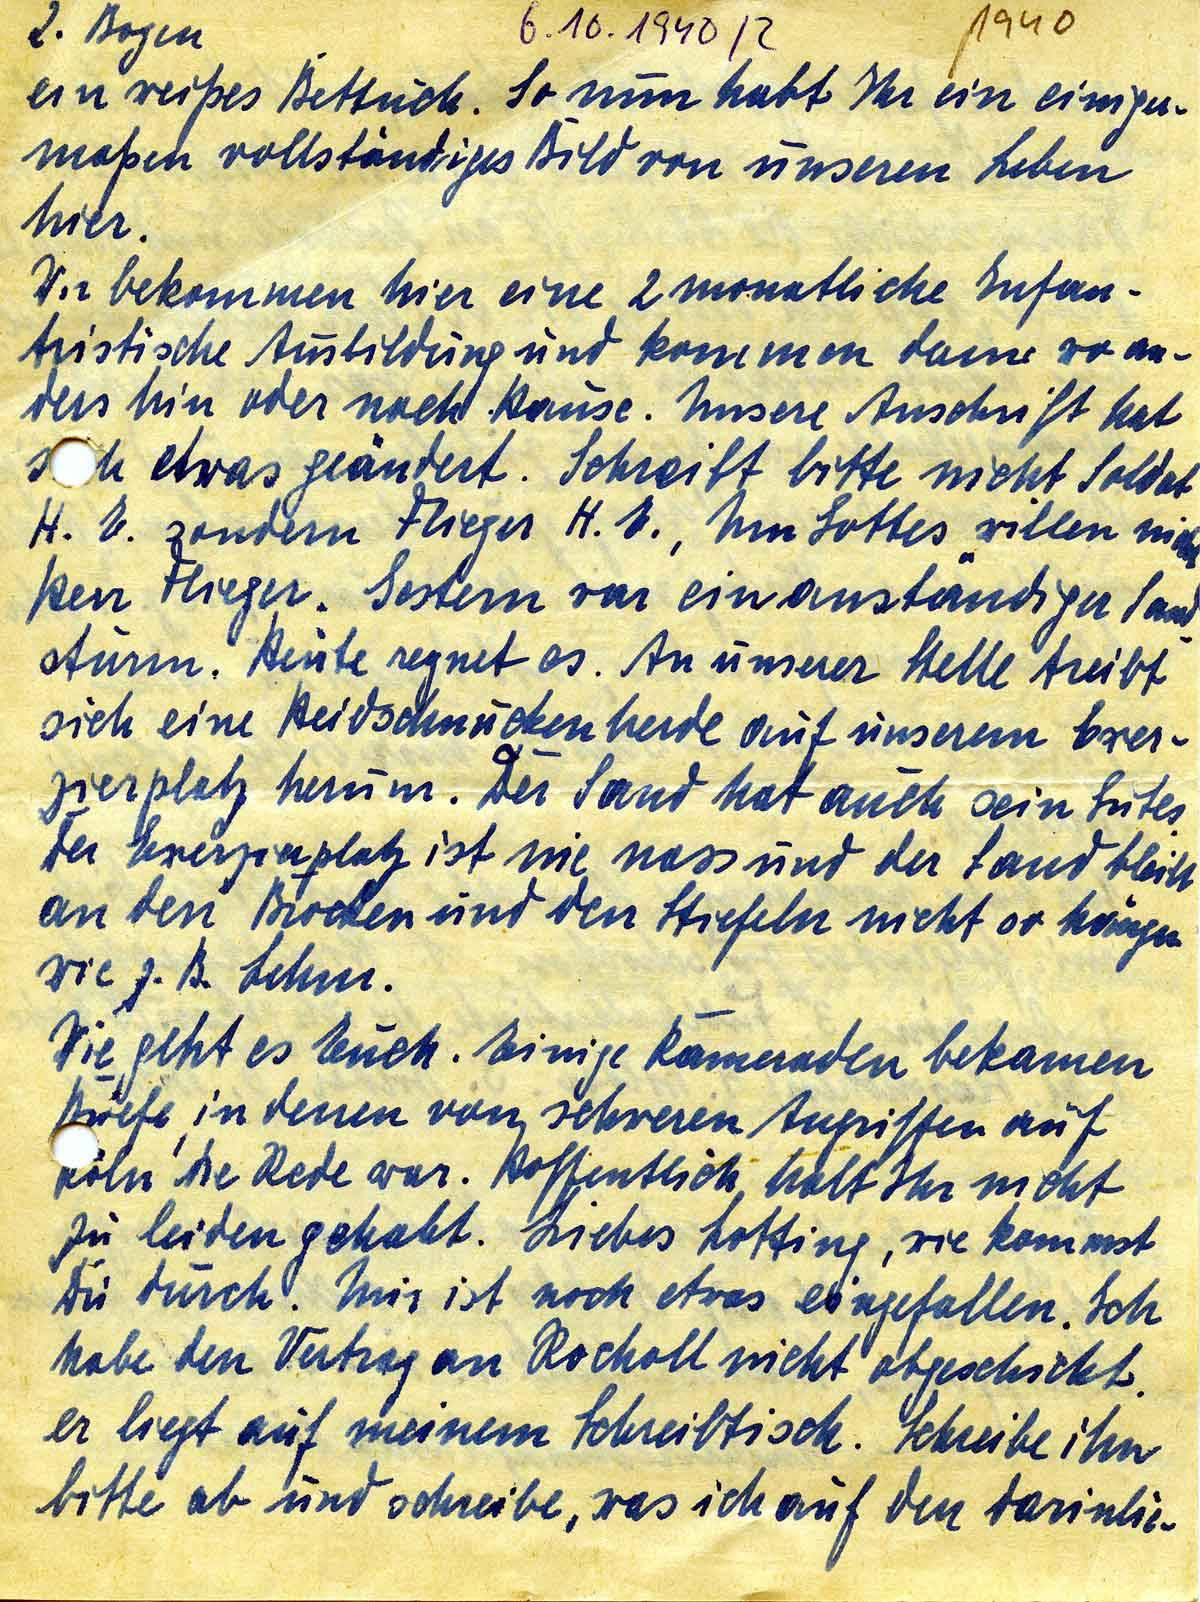 2. Bogen 6.10.1940/2 1940
ein weißes Bettuch. So nun habt Ihr ein einiger-
maßen vollständiges Bild von unseren Leben
hier.
Wir bekommen hier eine 2 monatliche Infan-
tristische Ausbildung und kommen dann wo an-
ders hin oder nach Hause. Unsere Anschrift hat
sich etwas geändert. Schreibt bitte nicht Soldat
H. E. sondern Flieger H. E., Um Gottes willen nicht
"Herr Flieger. Gestern war ein anständiger Sand-
sturm. Heute regnet es. An unserer Stelle treibt
sich eine Heidschnuckenherde auf unserem Exer-
zierplatz herum. Der Sand hat auch sein Gutes.
Der Exerzierplatz ist nie nass und der Sand bleibt
an den Brocken und den Stiefeln nicht so hängen
wie z. B. Lehm.
Wie geht es Euch. Einige Kameraden bekamen
Briefe, in denen von schweren Angriffen auf
Köln die Rede war. Hoffentlich habt Ihr nicht
zu leiden gehabt. Liebes Lotting, wie kommst
Du durch. Mir ist noch etwas eingefallen. Ich
habe den Vertrag an Rocholl nicht abgeschickt.
er liegt auf meinem Schreibtisch. Schreibe ihn
bitte ab und schreibe, was ich auf den darinlie-